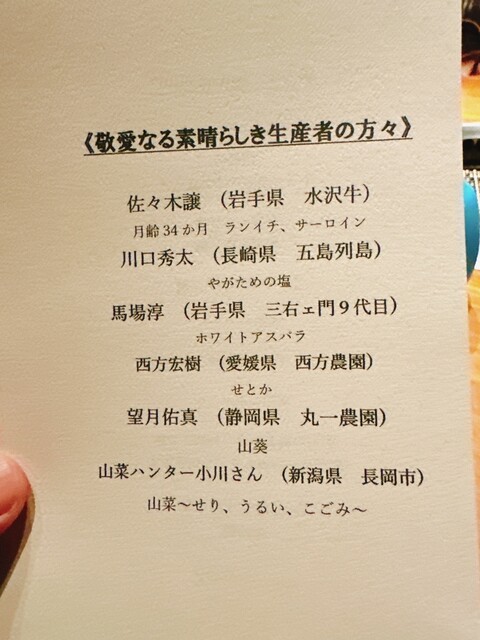 《敬愛なる素晴らしき生産者の方々》
佐々木譲 （岩手県 水沢牛）
月齢34か月 ランイチ、サーロイン
川口秀太 （長崎県 五島列島）
やがための塩
馬場淳 （岩手県 三右ェ門９代目）
ホワイトアスパラ
西方宏樹 （愛媛県 西方農園）
せとか
望月佑真 （静岡県 丸一農園）
山葵
山菜ハンター小川さん （新潟県 長岡市）
山菜～せり、うるい、こごみ～